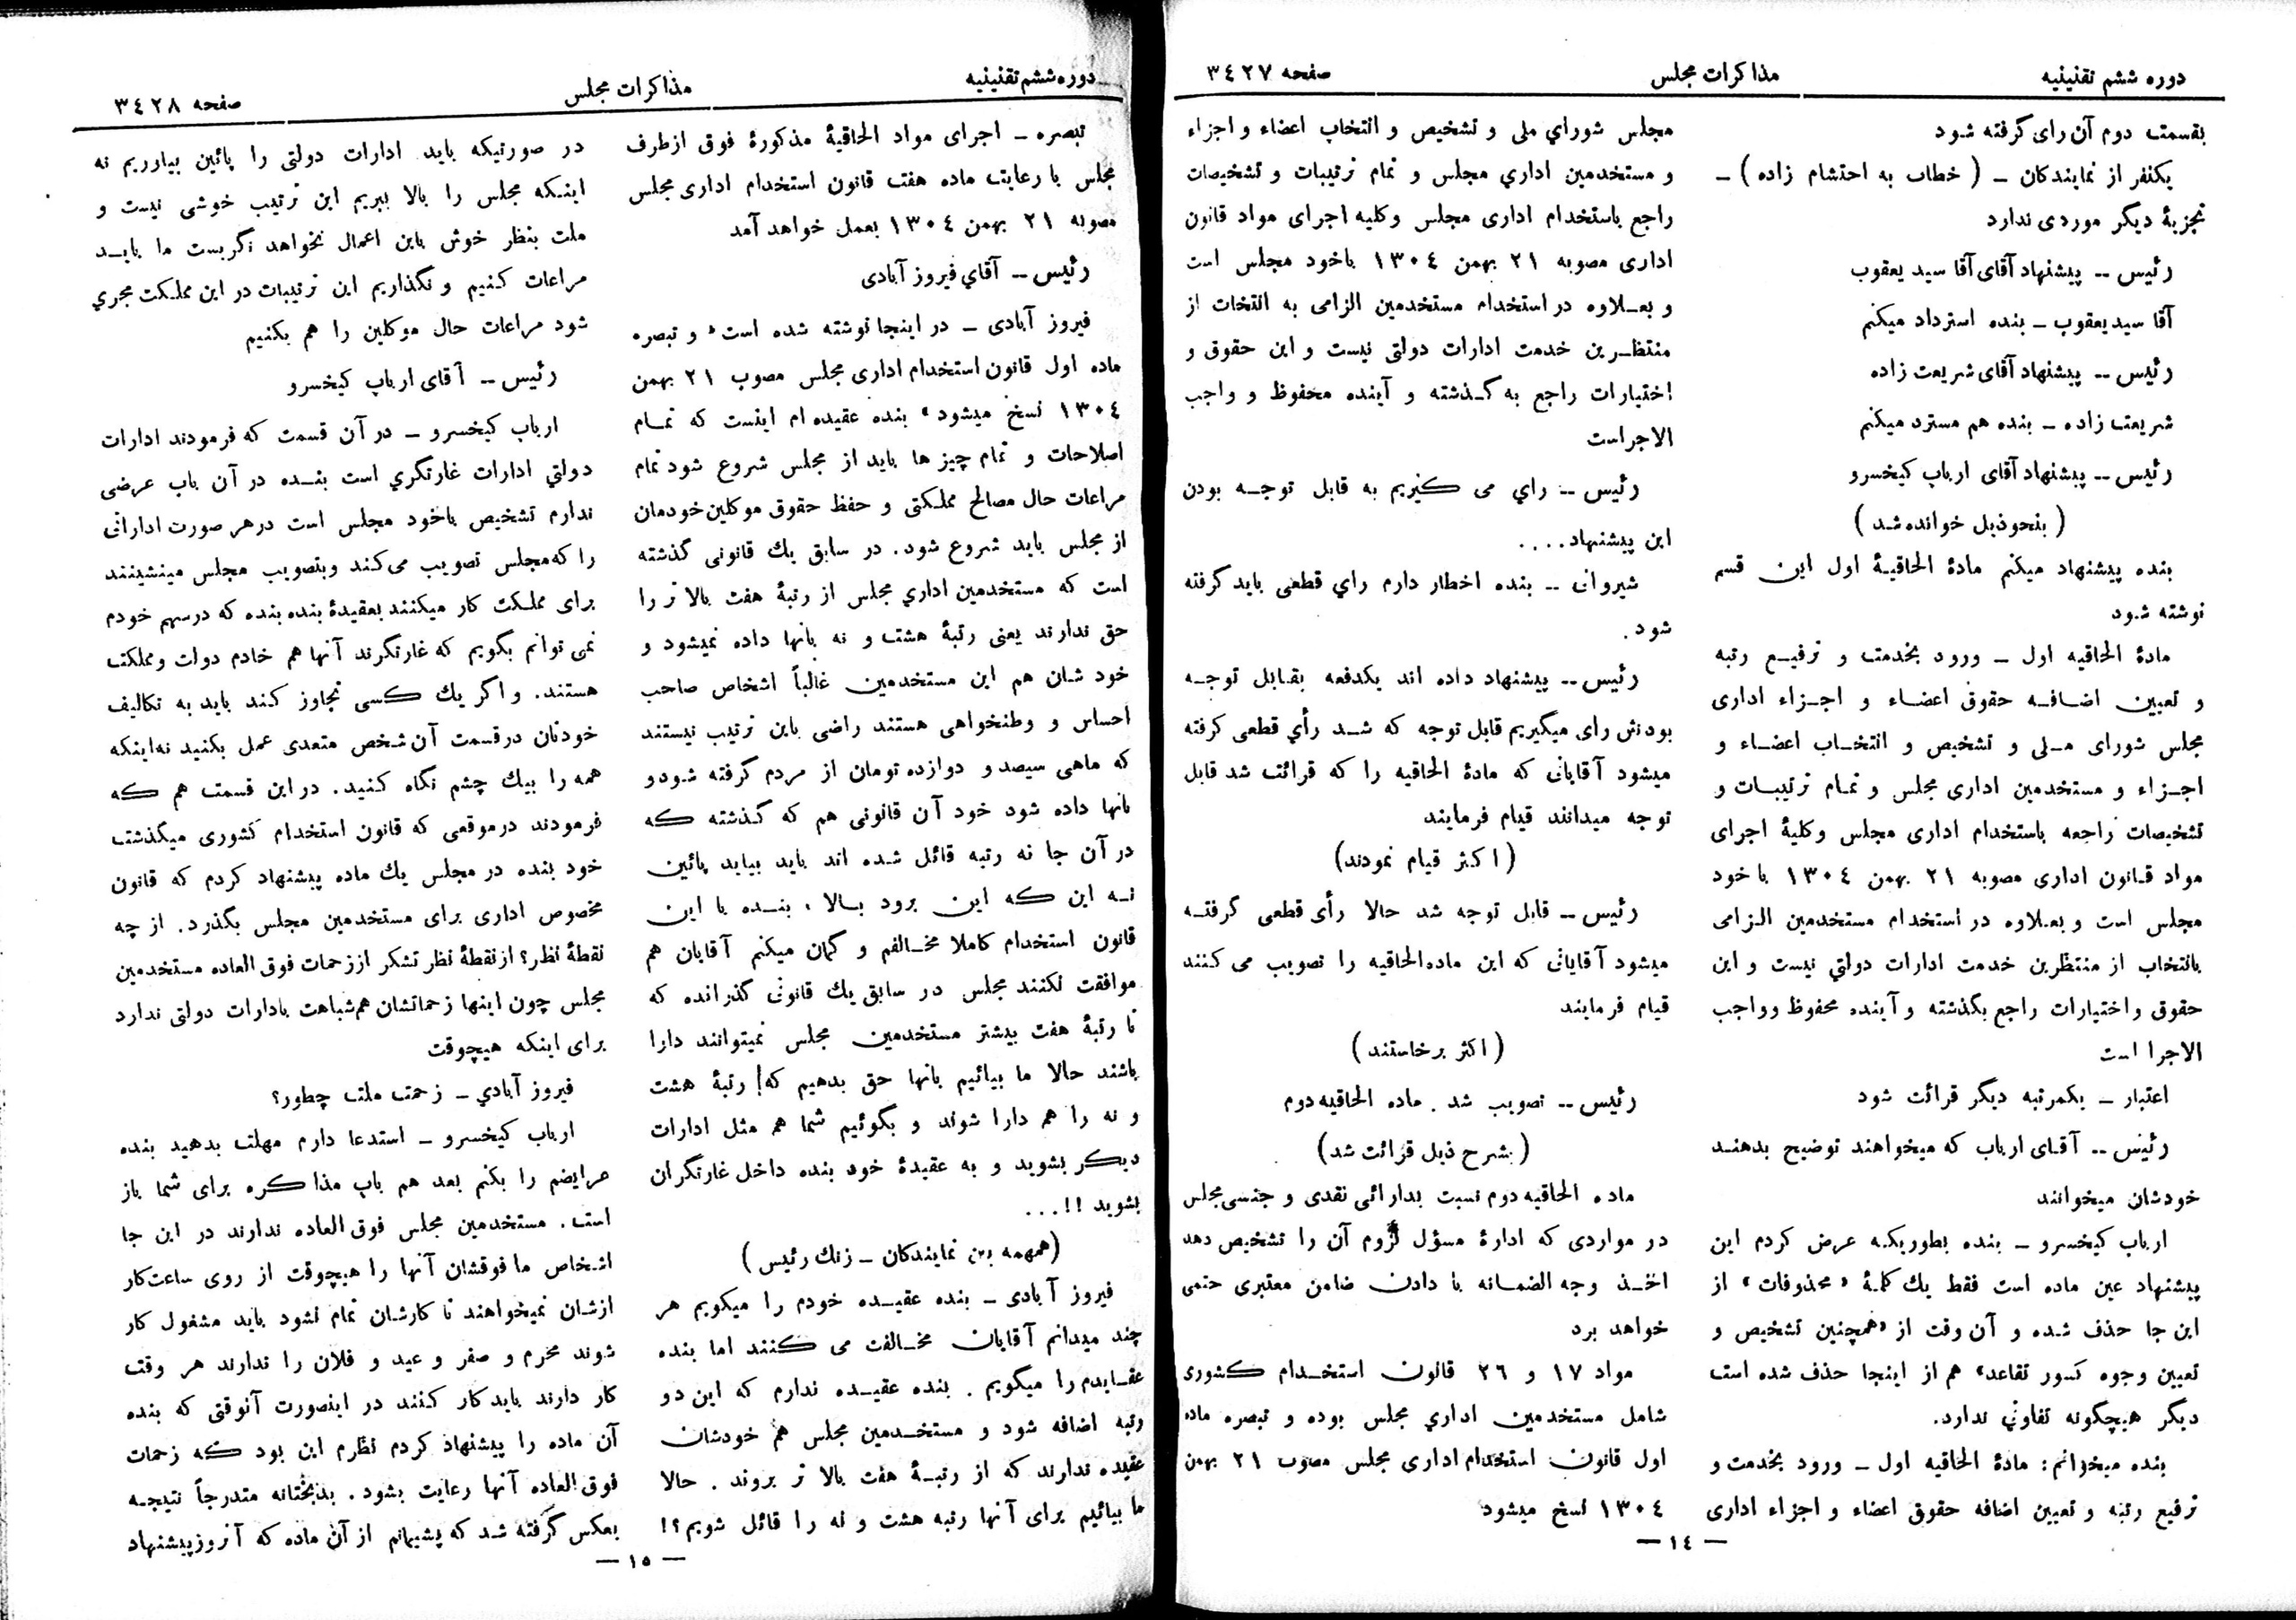 دوره ششم تقنینیه
مذاکرات مجلس
صفحه ۳٤۲۷
بقسمت دوم آن رای گرفته شود
یکنفر از نمایندکان ــ ( خطاب به احتشام زاده ) ــ
تجزیهٔ دیگر موردی ندارد
رئیس -- پیشنهاد آقای آقا سید یعقوب
آقا سید یعقوب ــ بنده استرداد میکنم
رئیس -- پیشنهاد آقای شریعت زاده
شریعت زاده ــ بنده هم مسترد میکنم
رئیس -- پیشنهاد آقای ارباب کیخسرو
( بنحوذیل خوانده شد )
بنده پیشنهاد میکنم مادهٔ الحاقیهٔ اول این قسم
نوشته شود
مادهٔ الحاقیه اول ــ ورود بخدمت و ترفیع رتبه
و تعیین اضافه حقوق اعضاء و اجزاء اداری
مجلس شورای ملی و تشخیص و انتخاب اعضاء و
اجزاء و مستخدمین اداری مجلس و تمام ترتیبات و
تشخیصات راجعه باستخدام اداری مجلس وکلیهٔ اجرای
مواد قانون اداری مصوبه ۲۱ بهمن ۱۳۰٤ با خود
مجلس است و بعلاوه در استخدام مستخدمین الزامی
بانتخاب از منتظرین خدمت ادارات دولتي نیست و این
حقوق و اختیارات راجع بگذشته و آینده محفوظ وواجب
الاجرا است
اعتبار ــ یکمرتبه دیگر قرائت شود
رئیس -- آقای ارباب که میخواهند توضیح بدهند
خودشان میخوانند
ارباب کیخسرو ــ بنده بطوریکه عرض کردم این
پیشنهاد عین ماده است فقط یك کلمهٔ « محذوفات » از
این جا حذف شده و آن وقت از «همچنین تشخیص و
تعیین وجوه کسور تقاعد» هم از اینجا حذف شده است
دیگر هیچگونه تفاوتي ندارد.
بنده میخوانم: مادهٔ الحاقیه اول ــ ورود بخدمت و
ترفیع رتبه و تعیین اضافه حقوق اعضاء و اجزاء اداری
مجلس شوراي ملی و تشخیص و انتخاب اعضاء و اجزاء
و مستخدمین اداري مجلس و تمام ترتیبات و تشخیصات
راجع باستخدام اداری مجلس وکلیه اجرای مواد قانون
اداری مصوبه ۲۱ بهمن ۱۳۰٤ باخود مجلس است
و بعلاوه در استخدام مستخدمین الزامی به انتخات از
منتظرین خدمت ادارات دولتی نیست و این حقوق و
اختیارات راجع به گذشته و آینده محفوظ و واجب
الاجراست
رئیس -- راي می گیریم به قابل توجه بودن
این پیشنهاد....
شیروانی -- بنده اخطار دارم راي قطعی باید گرفته
شود.
رئیس -- پیشنهاد داده اند یکدفعه بقابل توجه
بودنش رای میگیریم قابل توجه که شد رأي قطعی گرفته
میشود آقایانی که مادهٔ الحاقیه را که قرائت شد قابل
توجه میدانند قیام فرمایند
( اکثر قیام نمودند)
رئیس -- قابل توجه شد حالا رأی قطعی گرفته
میشود آقایانی که این ماده الحاقیه را تصویب می کنند
قیام فرمایند
( اکثر برخاستند )
رئیس -- تصویب شد . ماده الحاقیه دوم
( بشرح ذیل قرائت شد )
ماده الحاقیه دوم نسبت بدارائی نقدی و جنسی مجلس
در مواردی که ادارهٔ مسؤل لزوم آن را تشخیص دهد
اخذ وجه الضمانه یا دادن ضامن معتبری حتمی
خواهد برد
مواد ۱۷ و ۲٦ قانون استخدام کشوری
شامل مستخدمین اداري مجلس بوده و تبصره ماده
اول قانون استخدام اداری مجلس مصوب ۲۱ بهمن
۱۳۰٤ نسخ میشود
— ۱٤ —
دوره ششم تقنینیه
مذاکرات مجلس
صفحه ۳٤۲۸
تبصره ــ اجرای مواد الحاقیهٔ مذکورهٔ فوق ازطرف
مجلس با رعایت ماده هفت قانون استخدام اداری مجلس
مصوبه ۲۱ بهمن ۱۳۰٤ بعمل خواهد آمد
رئیس -- آقاي فیروز آبادی
فیروز آبادی ــ در اینجا نوشته شده است « و تبصره
ماده اول قانون استخدام اداری مجلس مصوب ۲۱ بهمن
۱۳۰٤ نسخ میشود » بنده عقیده ام اینست که تمام
اصلاحات و تمام چیز ها باید از مجلس شروع شود تمام
مراعات حال مصالح مملکتی و حفظ حقوق موکلین خودمان
از مجلس باید شروع شود. در سابق یك قانونی گذشته
است که مستخدمین اداري مجلس از رتبهٔ هفت بالا تر را
حق ندارند یعنی رتبهٔ هشت و نه بانها داده نمیشود و
خود شان هم این مستخدمین غالباً اشخاص صاحب
احساس و وطنخواهی هستند راضی باین ترتیب نیستند
که ماهی سیصد و دوازده تومان از مردم گرفته شود و
بانها داده شود خود آن قانونی هم که گذشته که
در آن جا نه رتبه قائل شده اند باید بیاید پائین
نه این که این برود بالا ، بنده با این
قانون استخدام کاملا مخالفم و گمان میکنم آقایان هم
موافقت نکنند مجلس در سابق یك قانونی گذرانده که
تا رتبهٔ هفت بیشتر مستخدمین مجلس نمیتوانند دارا
باشند حالا ما بیائیم بانها حق بدهیم که رتبهٔ هشت
و نه را هم دارا شوند و بگوئیم شما هم مثل ادارات
دیگر بشوید و به عقیدهٔ خود بنده داخل غارتگران
بشوید !!...
(همهمه بین نمایندکان ــ زنك رئیس )
فیروز آبادی ــ بنده عقیده خودم را میگویم هر
چند میدانم آقایان مخالفت می کنند اما بنده
عقایدم را میگویم . بنده عقیده ندارم که این دو
رتبه اضافه شود و مستخدمین مجلس هم خودشان
عقیده ندارند که از رتبهٔ هفت بالا تر بروند . حالا
ما بیائیم برای آنها رتبه هشت و نه را قائل شویم؟!
در صورتیکه باید ادارات دولتی را پائین بیاوریم نه
اینکه مجلس را بالا ببریم این ترتیب خوشی نیست و
ملت بنظر خوش باین اعمال نخواهد نگریست ما باید
مراعات کنیم و نگذاریم این ترتیبات در این مملکت مجري
شود مراعات حال موکلین را هم بکنیم
رئیس -- آقای ارباب کیخسرو
ارباب کیخسرو ــ در آن قسمت که فرمودند ادارات
دولتي ادارات غارتگري است بنده در آن باب عرضی
ندارم تشخیص باخود مجلس است درهر صورت اداراتی
را که مجلس تصویب می کند وبتصویب مجلس مینشینند
برای مملکت کار میکنند بعقیدهٔ بنده بنده که درسهم خودم
نمی توانم بگویم که غارتگرند آنها هم خادم دولت ومملکت
هستند. و اگر یك کسی تجاوز کند باید به تکالیف
خودتان در قسمت آن شخص متعدی عمل بکنید نه اینکه
همه را بیك چشم نگاه کنید. در این قسمت هم که
فرمودند درموقعی که قانون استخدام کشوری میگذشت
خود بنده در مجلس یك ماده پیشنهاد کردم که قانون
مخصوص اداری برای مستخدمین مجلس بگذرد. از چه
نقطهٔ نظر؟ از نقطهٔ نظر تشکر اززحمات فوق العاده مستخدمین
مجلس چون اینها زحماتشان هم شباهت بادارات دولتی ندارد
برای اینکه هیچوقت
فیروز آبادي ــ زحمت ملت چطور؟
ارباب کیخسرو ــ استدعا دارم مهلت بدهید بنده
عرایضم را بکنم بعد هم باب مذاکره برای شما باز
است. مستخدمین مجلس فوق العاده ندارند در این جا
اشخاص مافوقشان آنها را هیچوقت از روی ساعت کار
ازشان نمیخواهند تا کارشان تمام نشود باید مشغول کار
شوند محرم و صفر و عید و فلان را ندارند هر وقت
کار دارند باید کار کنند در اینصورت آنوقتی که بنده
آن ماده را پیشنهاد کردم نظرم این بود که زحمات
فوق العاده آنها رعایت بشود. بدبختانه متدرجاً نتیجه
بعکس گرفته شد که پشیمانم از آن ماده که آنروز پیشنهاد
— ۱٥ —